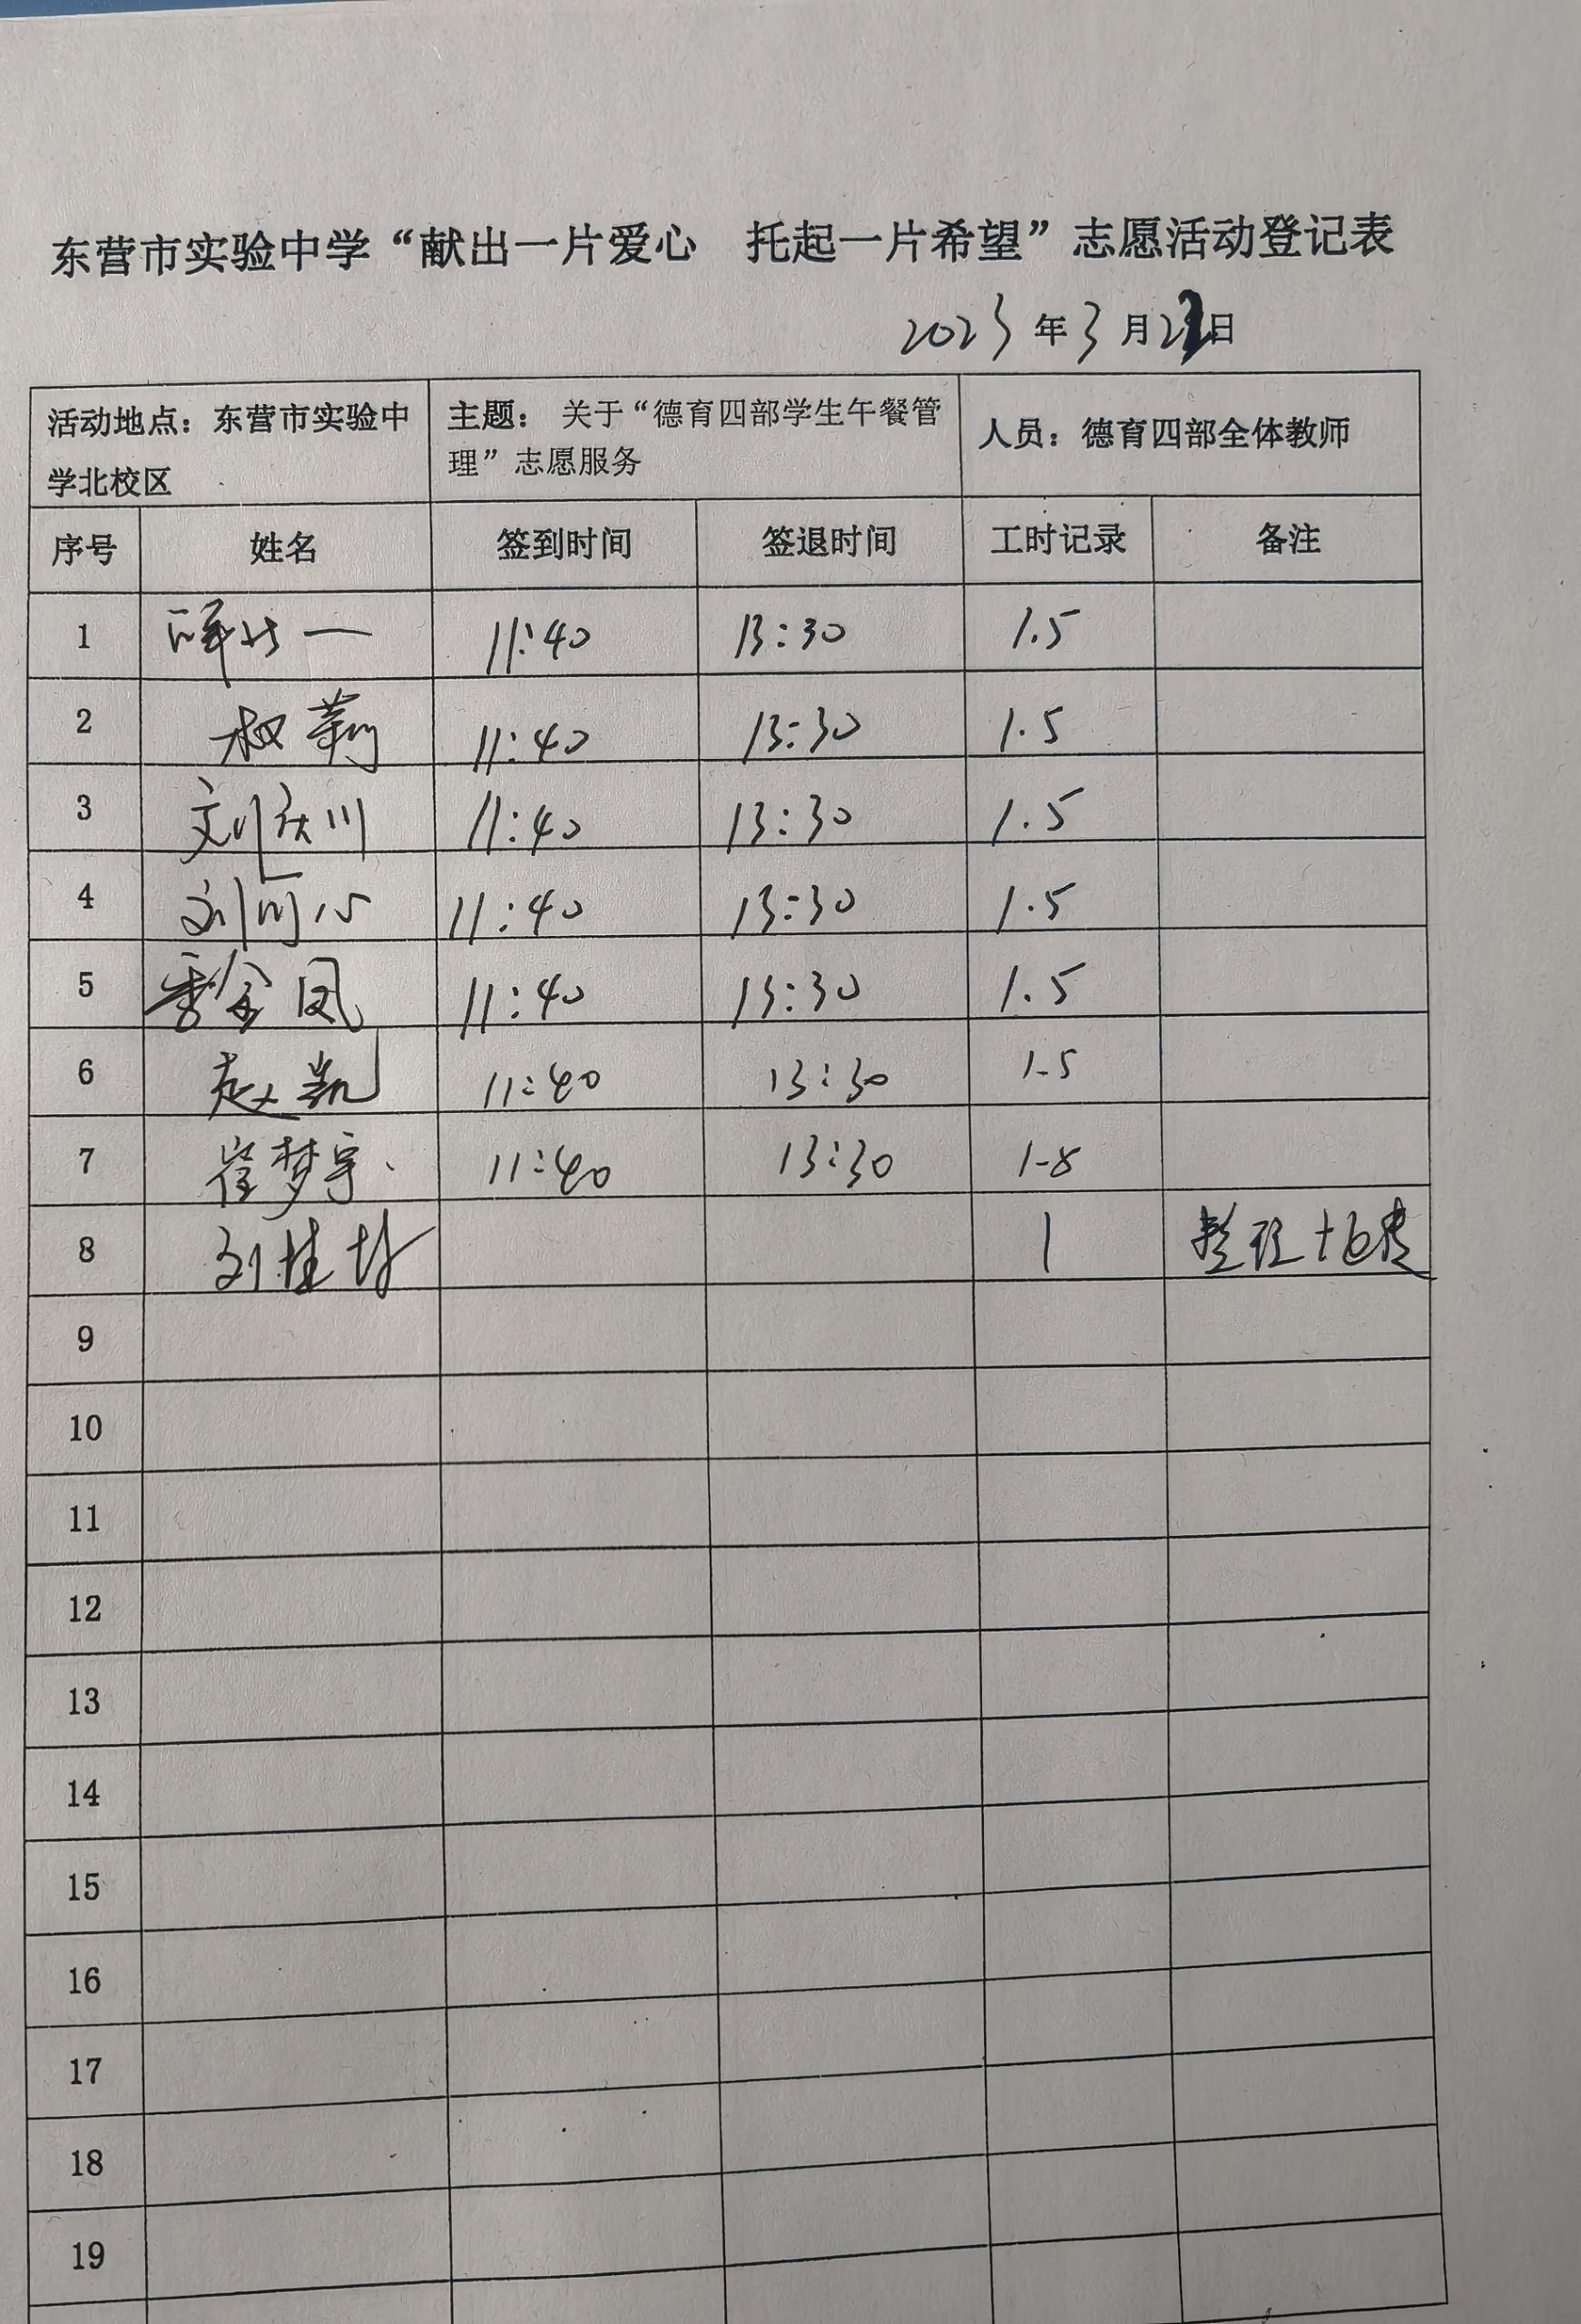 东营市实验中学“献出一片爱心 托起一片希望”志愿活动登记表
2023年3月2日
活动地点：东营市实验中学北校区 主题：关于“德育四部学生午餐管理”志愿服务 人员：德育四部全体教师
序号 姓名 签到时间 签退时间 工时记录 备注
1 11:40 13:30 1.5
2 权莉 11:40 13:30 1.5
3 刘庆川 11:40 13:30 1.5
4 刘同心 11:40 13:30 1.5
5 季金凤 11:40 13:30 1.5
6 赵凯 11:40 13:30 1.5
7 崔梦宇 11:40 13:30 1.5
8 刘 1 整理
9
10
11
12
13
14
15
16
17
18
19